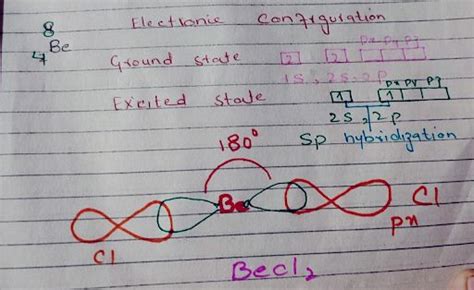 8
4 Be
Electronic Configuration
px py pz
Ground state 2 2
1s, 2s, 2p
px py pz
Excited state 1 1
2s, 2p
sp hybridization
180°
Be
Cl
Cl
px
BeCl2